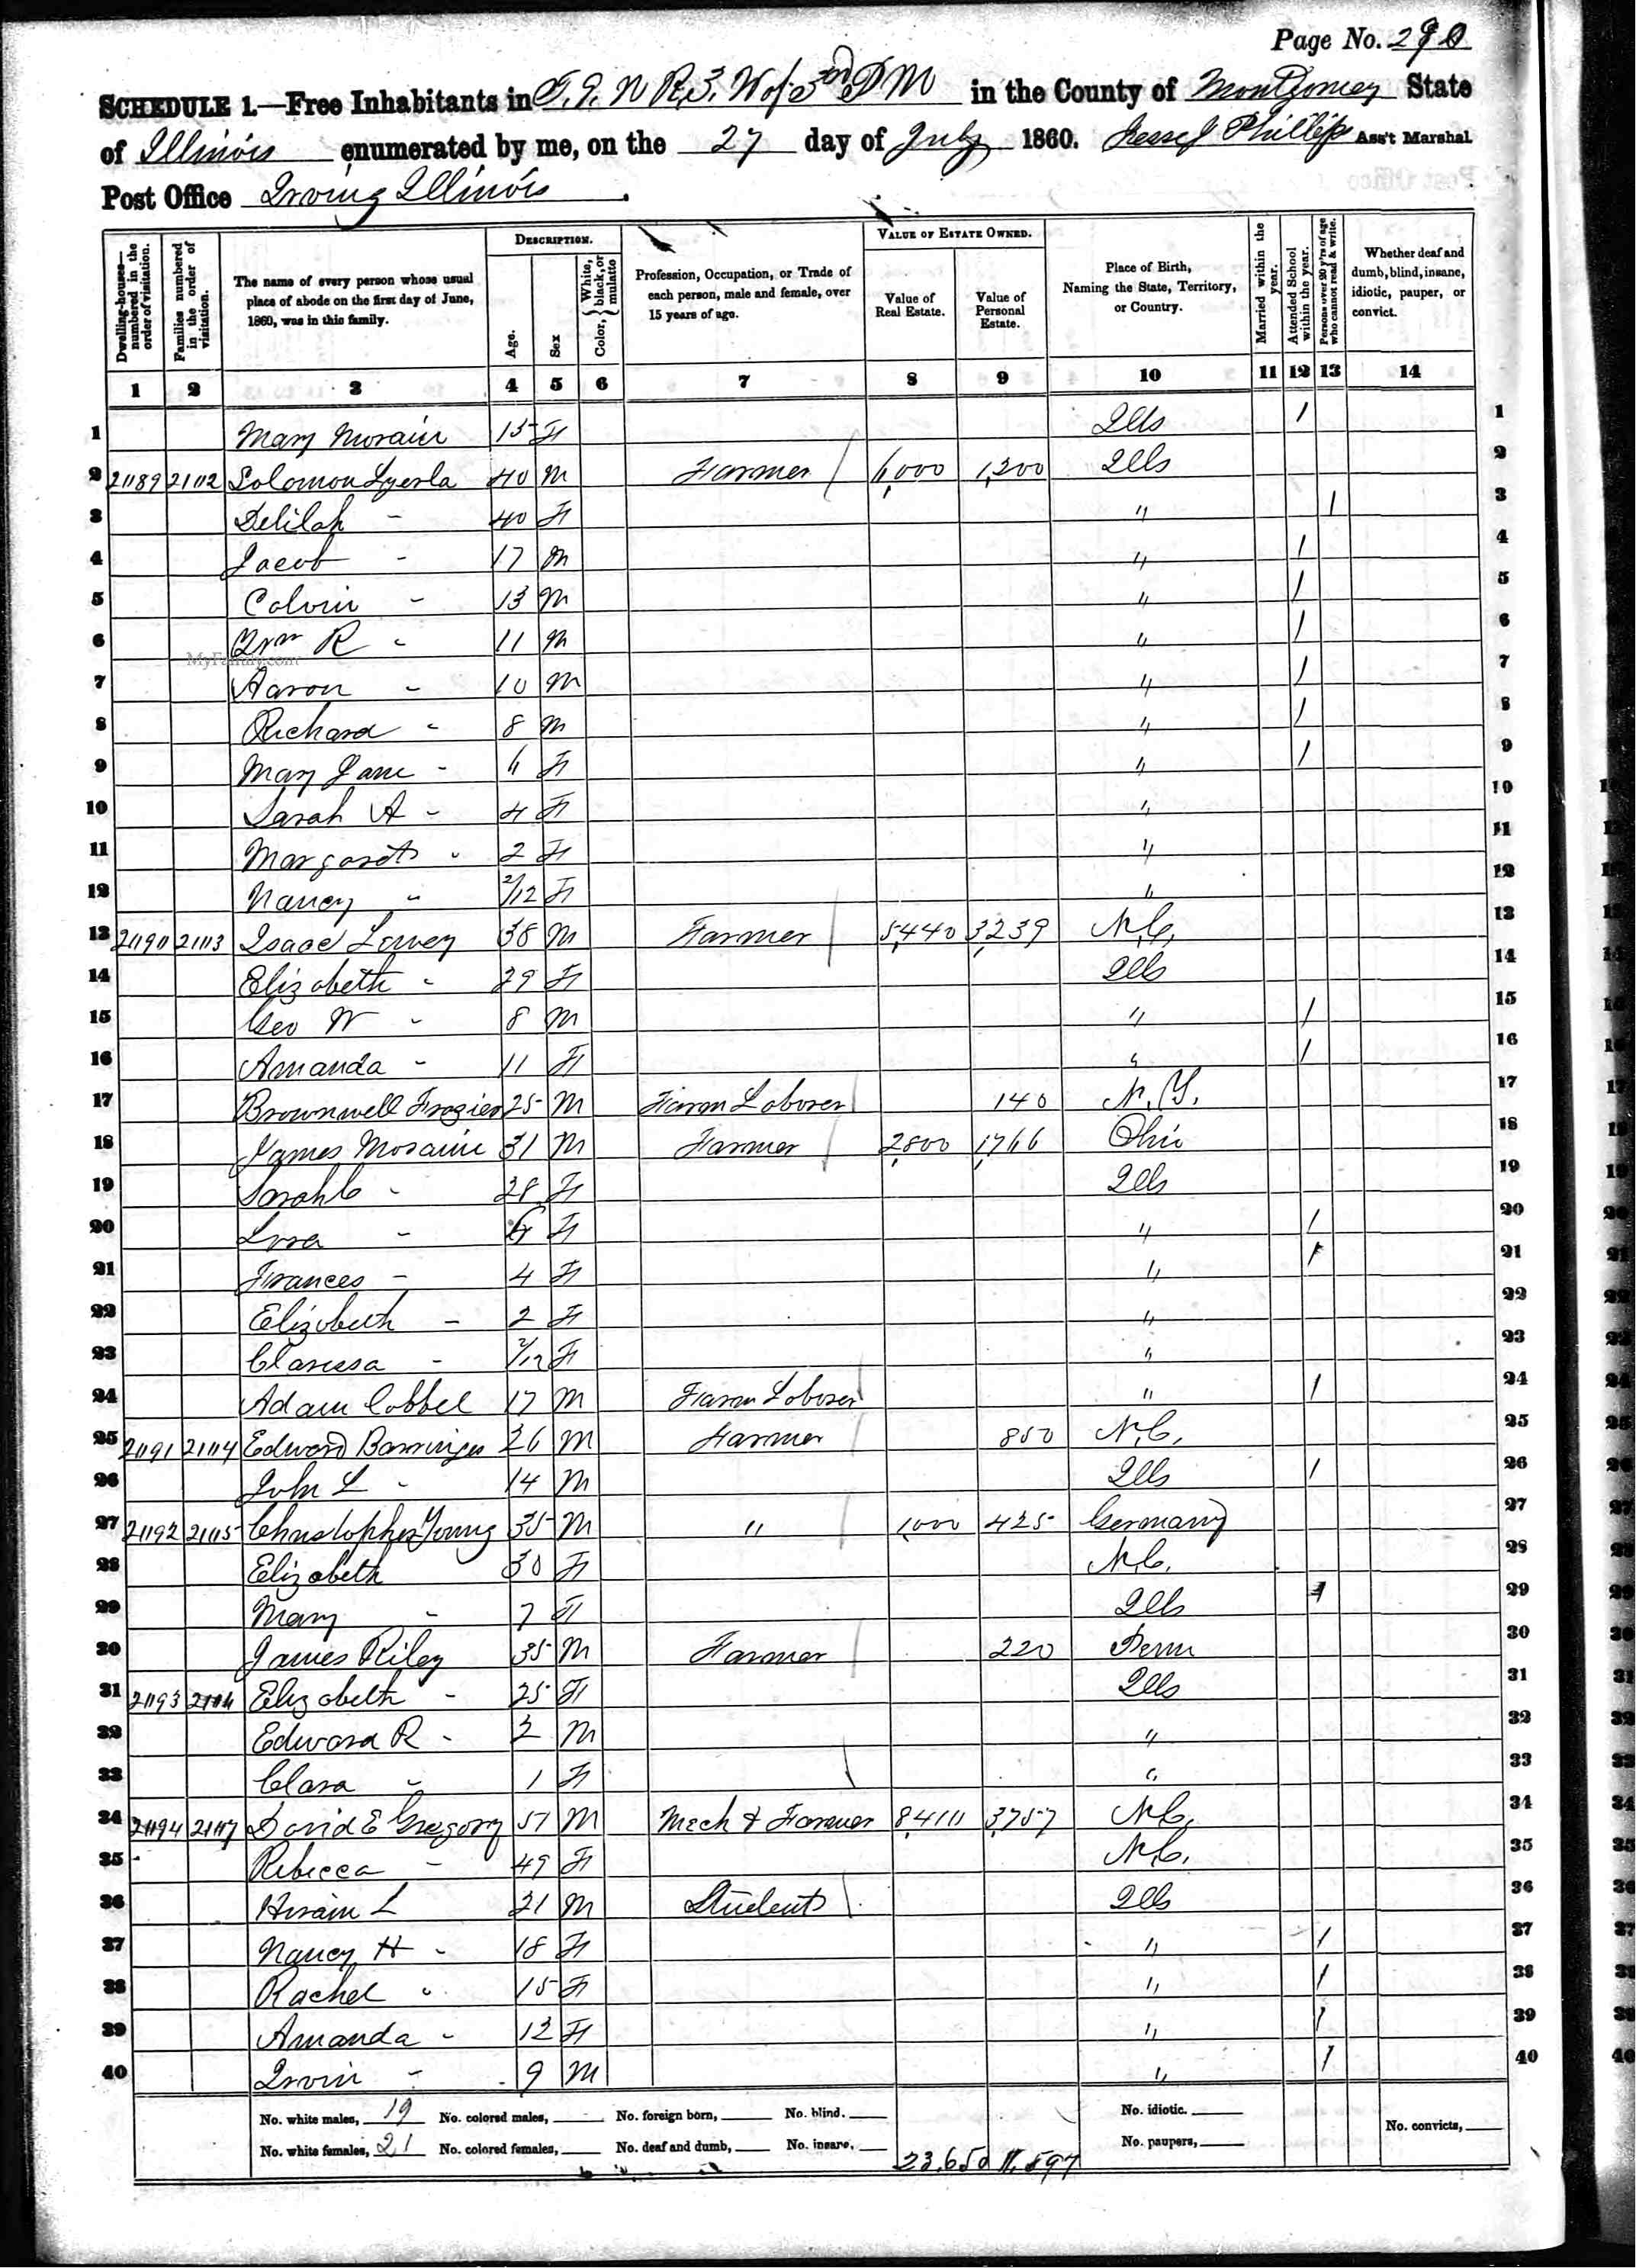 Page No. 290
SCHEDULE 1.—Free Inhabitants in T. 9. N R, 3. W of 3rd P M in the County of Montgomery State
of Illinois enumerated by me, on the 27 day of July 1860. Phillips Ass't Marshal
Post Office Irving Illinois.
Dwelling-houses—numbered in the order of visitation.
Families numbered in the order of visitation.
The name of every person whose usual place of abode on the first day of June, 1860, was in this family.
DESCRIPTION.
Age.
Sex
Color, { White, black, or mulatto
Profession, Occupation, or Trade of each person, male and female, over 15 years of age.
VALUE OF ESTATE OWNED.
Value of Real Estate.
Value of Personal Estate.
Place of Birth, Naming the State, Territory, or Country.
Married within the year.
Attended School within the year.
Persons over 20 y'rs of age who cannot read & write.
Whether deaf and dumb, blind, insane, idiotic, pauper, or convict.
1 2 3 4 5 6 7 8 9 10 11 12 13 14
1 Mary 13 F Ills / 1
2 Solomon Lyerla 40 M Farmer / 6,000 1,200 Ills 2
3 Delilah - 40 F " / 3
4 Jacob - 17 M " / 4
5 Calvin - 13 M " / 5
6 Wm R - 11 M " / 6
7 Aaron - 10 M " / 7
8 Richard - 8 M " / 8
9 Mary Jane - 6 F " / 9
10 Sarah A - 4 F " 10
11 Margaret - 2 F " 11
12 Nancy " 2/12 F " 12
13 Isaac 38 M Farmer / 5,440 3,239 N.C. 13
14 Elizabeth - 29 F Ills 14
15 Geo W - 8 M " / 15
16 Amanda - 11 F " / 16
17 Brownwell Frazier 25 M Farm Laborer / 140 N.Y. 17
18 James 31 M Farmer / 2,800 1,766 Ohio 18
19 Sarah C - 28 F Ills 19
20 - F " / 20
21 Frances - 4 F " / 21
22 Elizabeth - 2 F " 22
23 Clarissa - F " 23
24 Adam Cobbel 17 M Farm Laborer / " / 24
25 Edward Barringer 26 M Farmer / 850 N.C. 25
26 John L - 14 M Ills / 26
27 Christopher Young 35 M " / 1,000 425 Germany 27
28 Elizabeth 30 F N.C. 28
29 Mary - 7 F Ills / 29
30 James Riley 35 M Farmer / 220 Penn 30
31 Elizabeth - 25 F Ills 31
32 Edward R - M " 32
33 Clara - 1 F " 33
34 David E Gregory 51 M Mech & Farmer 3,757 N.C. 34
35 Rebecca - 49 F N.C. 35
36 Hiram L 21 M Student Ills 36
37 Nancy H - 18 F " / 37
38 Rachel " 15 F " / 38
39 Amanda - 12 F " / 39
40 Irvin - 9 M " / 40
MyFamily.com
No. white males, 19 No. colored males, No. foreign born, No. blind. No. idiotic. No. convicts,
No. white females, 21 No. colored females, No. deaf and dumb, No. insane, 23,650 No. paupers,